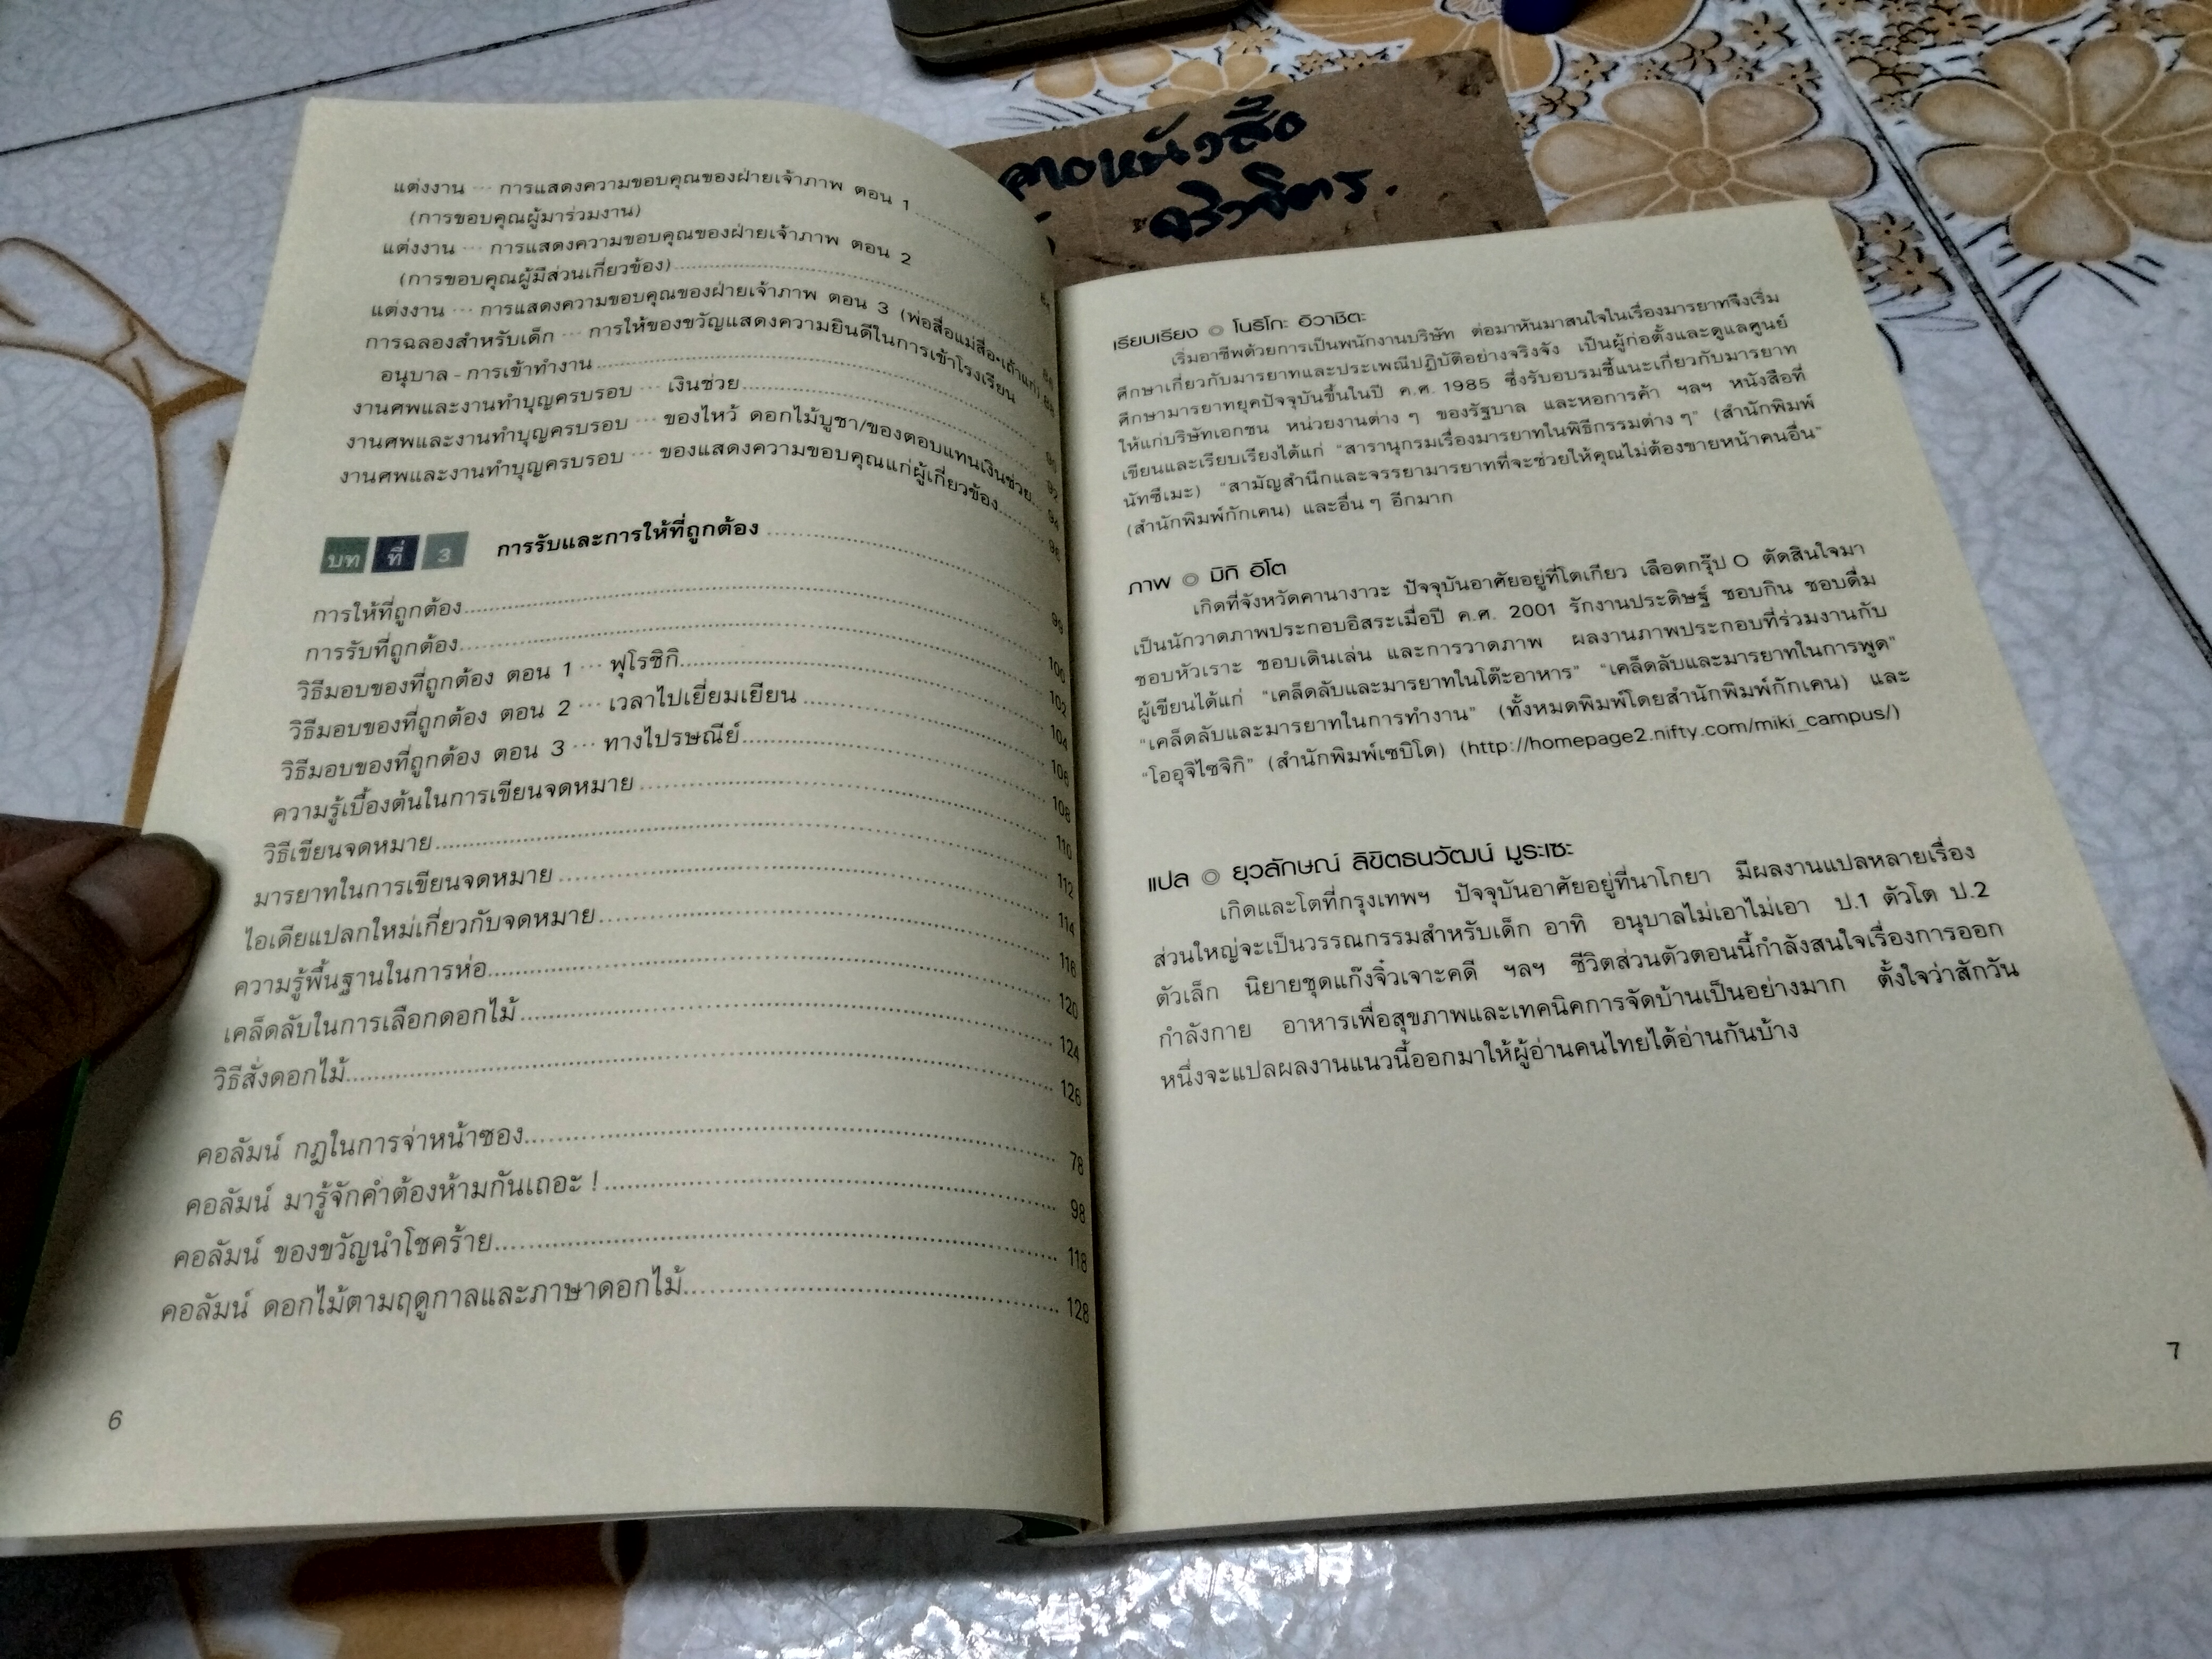 แต่งงาน ··· การแสดงความขอบคุณของฝ่ายเจ้าภาพ ตอน 1
(การขอบคุณผู้มาร่วมงาน)
แต่งงาน ··· การแสดงความขอบคุณของฝ่ายเจ้าภาพ ตอน 2
(การขอบคุณผู้มีส่วนเกี่ยวข้อง)
แต่งงาน ··· การแสดงความขอบคุณของฝ่ายเจ้าภาพ ตอน 3 (พ่อสื่อแม่สื่อ-เถ้าแก่) 88
การฉลองสำหรับเด็ก ··· การให้ของขวัญแสดงความยินดีในการเข้าโรงเรียน
อนุบาล - การเข้าทำงาน 90
งานศพและงานทำบุญครบรอบ ··· เงินช่วย 92
งานศพและงานทำบุญครบรอบ ··· ของไหว้ ดอกไม้บูชา/ของตอบแทนเงินช่วย 94
งานศพและงานทำบุญครบรอบ ··· ของแสดงความขอบคุณแก่ผู้เกี่ยวข้อง 96
บท ที่ 3 การรับและการให้ที่ถูกต้อง 99
การให้ที่ถูกต้อง 100
การรับที่ถูกต้อง 102
วิธีมอบของที่ถูกต้อง ตอน 1 ··· ฟุโรชิกิ 104
วิธีมอบของที่ถูกต้อง ตอน 2 ··· เวลาไปเยี่ยมเยียน 106
วิธีมอบของที่ถูกต้อง ตอน 3 ··· ทางไปรษณีย์ 108
ความรู้เบื้องต้นในการเขียนจดหมาย 110
วิธีเขียนจดหมาย 112
มารยาทในการเขียนจดหมาย 114
ไอเดียแปลกใหม่เกี่ยวกับจดหมาย 116
ความรู้พื้นฐานในการห่อ 120
เคล็ดลับในการเลือกดอกไม้ 124
วิธีสั่งดอกไม้ 126
คอลัมน์ กฎในการจ่าหน้าซอง 78
คอลัมน์ มารู้จักคำต้องห้ามกันเถอะ ! 98
คอลัมน์ ของขวัญนำโชคร้าย 118
คอลัมน์ ดอกไม้ตามฤดูกาลและภาษาดอกไม้ 128
6
เรียบเรียง ◎ โนริโกะ อิวาชิตะ
เริ่มอาชีพด้วยการเป็นพนักงานบริษัท ต่อมาหันมาสนใจในเรื่องมารยาทจึงเริ่ม
ศึกษาเกี่ยวกับมารยาทและประเพณีปฏิบัติอย่างจริงจัง เป็นผู้ก่อตั้งและดูแลศูนย์
ศึกษามารยาทยุคปัจจุบันขึ้นในปี ค.ศ. 1985 ซึ่งรับอบรมชี้แนะเกี่ยวกับมารยาท
ให้แก่บริษัทเอกชน หน่วยงานต่าง ๆ ของรัฐบาล และหอการค้า ฯลฯ หนังสือที่
เขียนและเรียบเรียงได้แก่ "สารานุกรมเรื่องมารยาทในพิธีกรรมต่าง ๆ" (สำนักพิมพ์
นัทซึเมะ) "สามัญสำนึกและจรรยามารยาทที่จะช่วยให้คุณไม่ต้องขายหน้าคนอื่น"
(สำนักพิมพ์กักเคน) และอื่น ๆ อีกมาก
ภาพ ◎ มิกิ อิโต
เกิดที่จังหวัดคานางาวะ ปัจจุบันอาศัยอยู่ที่โตเกียว เลือดกรุ๊ป O ตัดสินใจมา
เป็นนักวาดภาพประกอบอิสระเมื่อปี ค.ศ. 2001 รักงานประดิษฐ์ ชอบกิน ชอบดื่ม
ชอบหัวเราะ ชอบเดินเล่น และการวาดภาพ ผลงานภาพประกอบที่ร่วมงานกับ
ผู้เขียนได้แก่ "เคล็ดลับและมารยาทในโต๊ะอาหาร" "เคล็ดลับและมารยาทในการพูด"
"เคล็ดลับและมารยาทในการทำงาน" (ทั้งหมดพิมพ์โดยสำนักพิมพ์กักเคน) และ
"โออุจิไซจิกิ" (สำนักพิมพ์เซบิโด) (http://homepage2.nifty.com/miki_campus/)
แปล ◎ ยุวลักษณ์ ลิขิตธนวัฒน์ มูระเซะ
เกิดและโตที่กรุงเทพฯ ปัจจุบันอาศัยอยู่ที่นาโกยา มีผลงานแปลหลายเรื่อง
ส่วนใหญ่จะเป็นวรรณกรรมสำหรับเด็ก อาทิ อนุบาลไม่เอาไม่เอา ป.1 ตัวโต ป.2
ตัวเล็ก นิยายชุดแก๊งจิ๋วเจาะคดี ฯลฯ ชีวิตส่วนตัวตอนนี้กำลังสนใจเรื่องการออก
กำลังกาย อาหารเพื่อสุขภาพและเทคนิคการจัดบ้านเป็นอย่างมาก ตั้งใจว่าสักวัน
หนึ่งจะแปลผลงานแนวนี้ออกมาให้ผู้อ่านคนไทยได้อ่านกันบ้าง
7